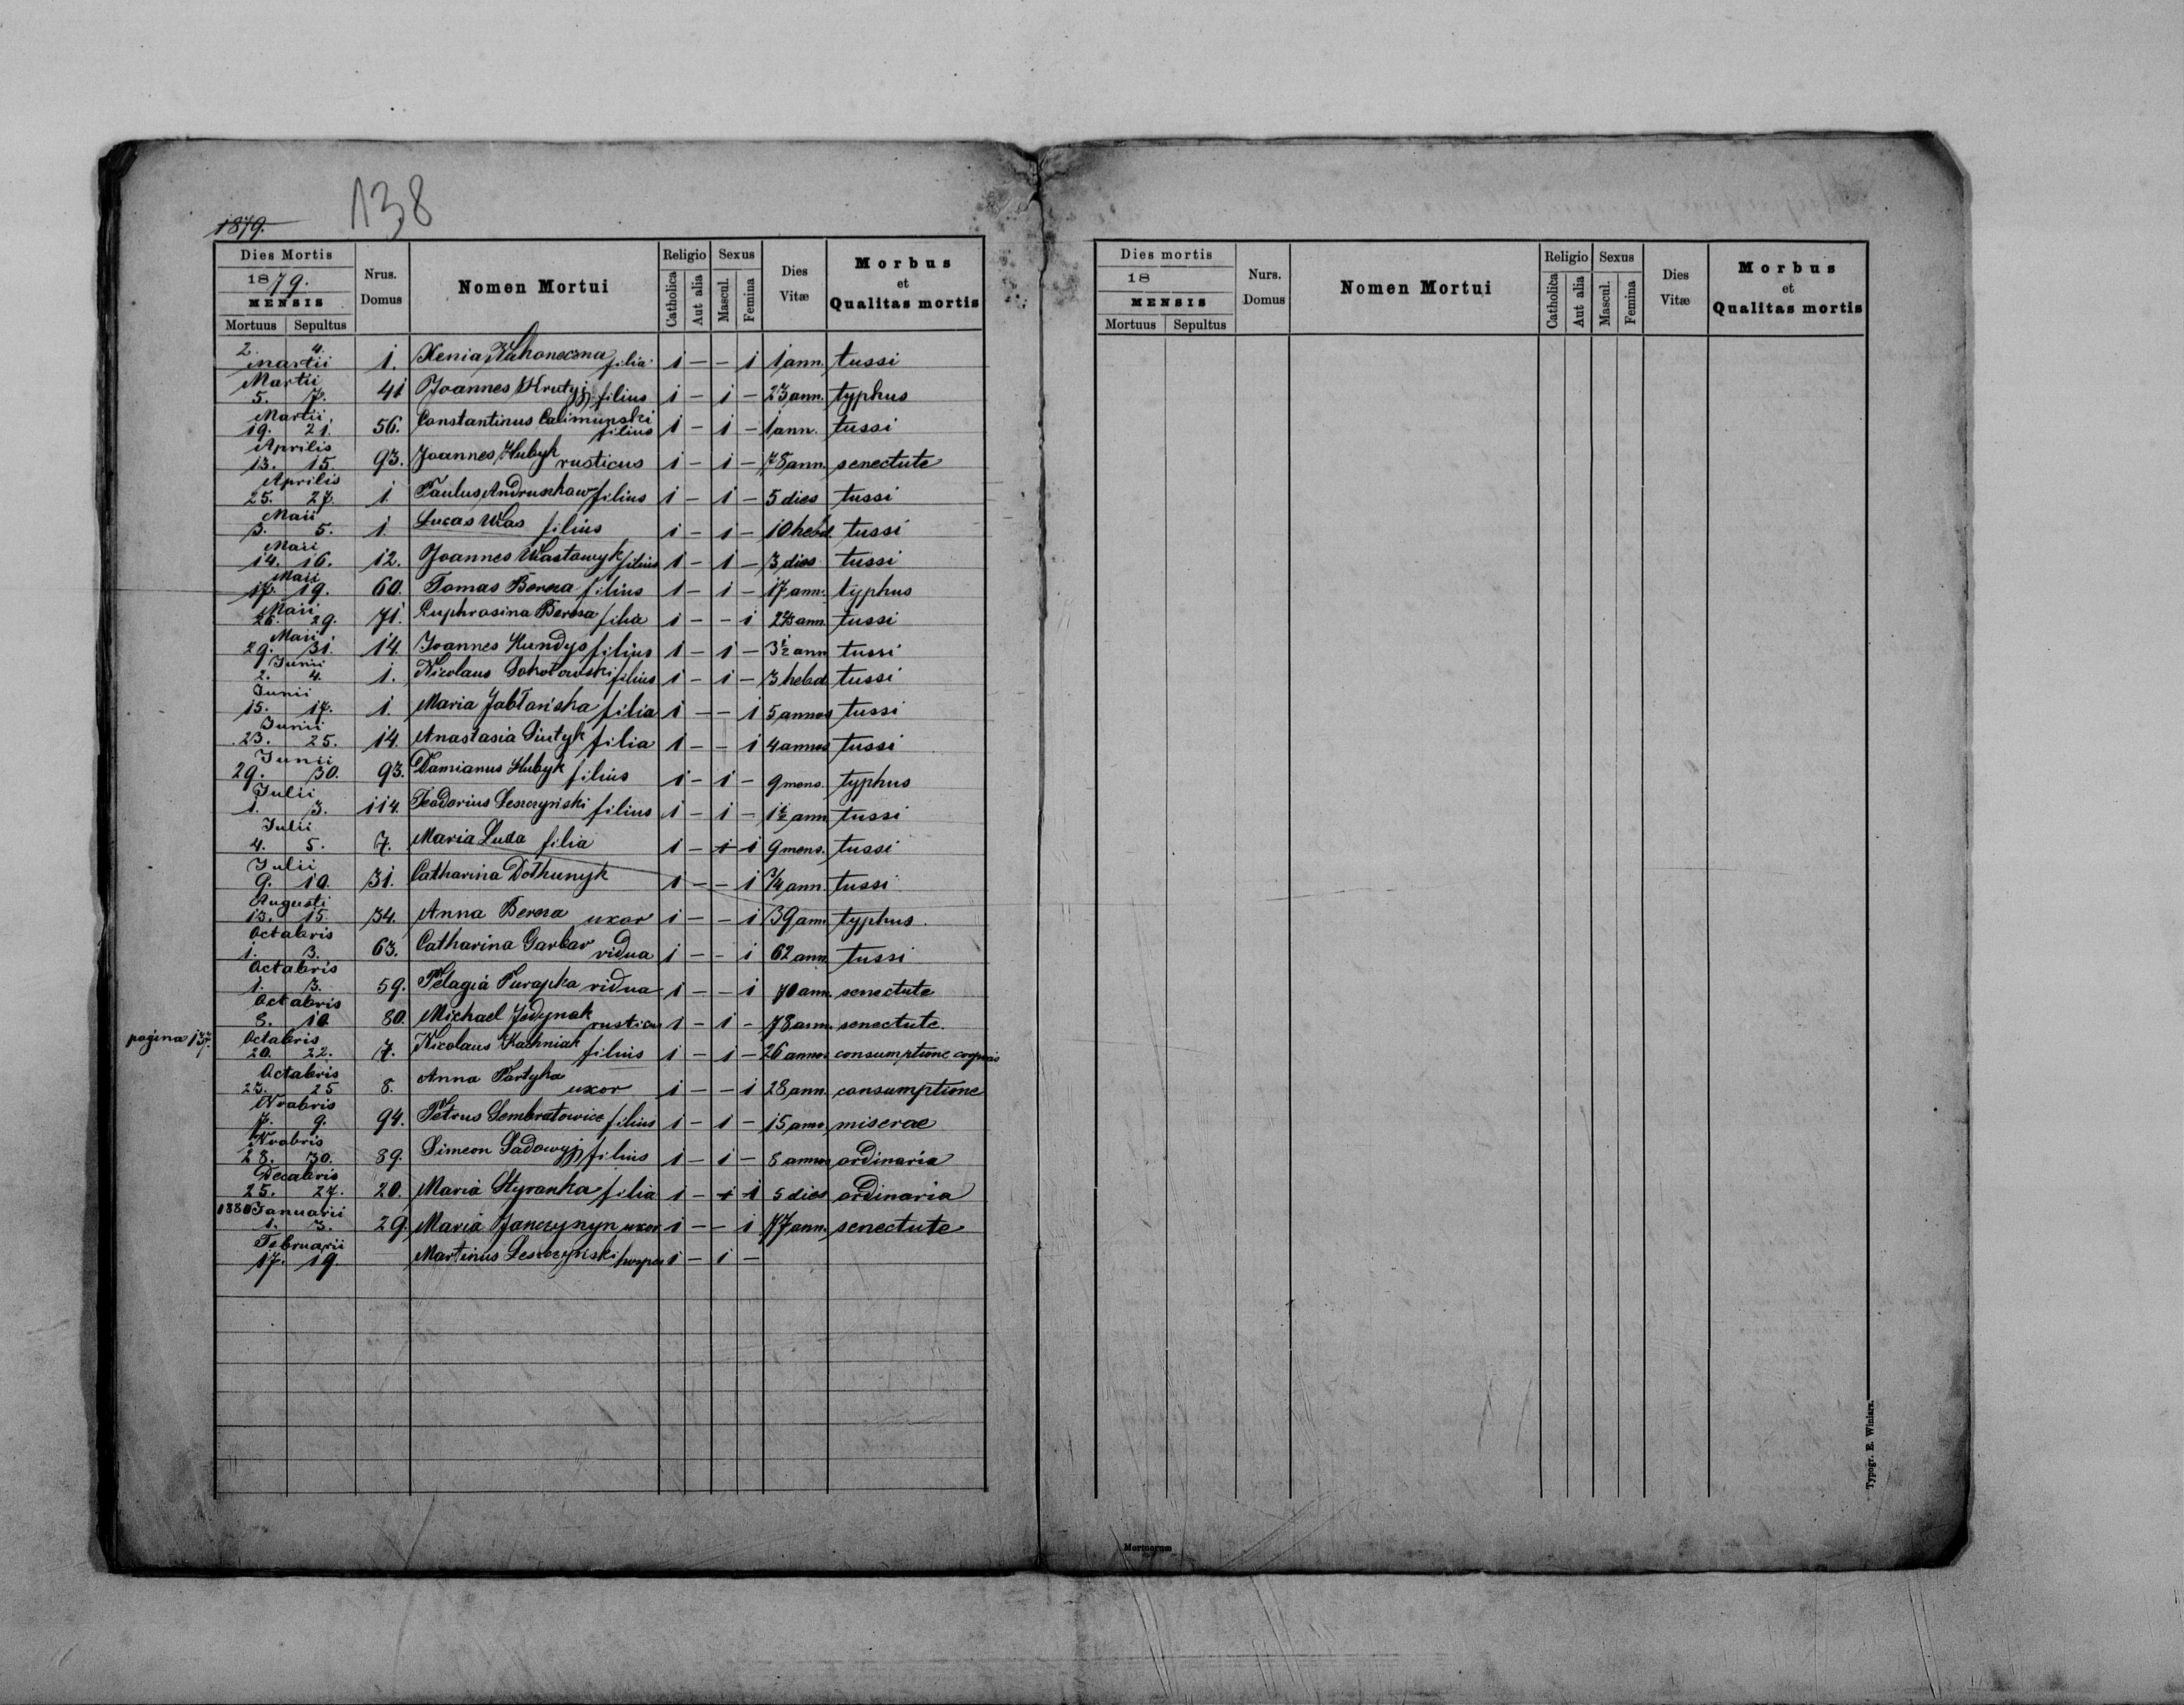 138
1879.
Dies Mortis
1879.
MENSIS
Mortuus Sepultus
Nrus. Domus
Nomen Mortui
Religio
Catholica Aut alia
Sexus
Mascul. Femina
Dies Vitæ
Morbus et Qualitas mortis
2. 4. Martii 1. Xenia filia 1 — — 1 1 ann. tussi
Martii 5. 7. 41 Joannes Hrutyj filius 1 — 1 — 23 ann. typhus
Martii 19. 21. 56. Constantinus Calimunski filius 1 — 1 — 1 ann. tussi
Aprilis 13. 15. 93. Joannes Hubyk rusticus 1 — 1 — 78 ann. senectute
Aprilis 25. 27. 1. Paulus Andruskow filius 1 — 1 — 5 dies tussi
Maii 3. 5. 1. Lucas Was filius 1 — 1 — 10 hebd. tussi
Maii 14. 16. 12. Joannes Wastawyk filius 1 — 1 — 3 dies tussi
Maii 17. 19. 60. Tomas Bereza filius 1 — 1 — 17 ann. typhus
Maii 26. 29. 71. Euphrosina Bereza filia 1 — — 1 ann. tussi
Maii 29. 31. 14. Joannes Hundys filius 1 — 1 — 3½ ann tussi
Junii 2. 4. 1. Nicolaus Sokołowski filius 1 — 1 — 3 hebd. tussi
Junii 15. 17. 1. Maria Jabłońska filia 1 — — 1 5 annos tussi
Junii 23. 25. 14. Anastasia Piutyk filia 1 — — 1 4 annos tussi
Junii 29. 30. 93. Damianus Hubyk filius 1 — 1 — 9 mens. typhus
Julii 1. 3. 114. Teodorius Leszczyński filius 1 — 1 — 1½ ann tussi
Julii 4. 5. 7. Maria Luda filia 1 — 1 1 9 mens. tussi
Julii 9. 10. 31. Catharina Dothunyk 1 — — 1 ¾ ann. tussi
Augusti 13. 15. 34. Anna Bereza uxor 1 — — 1 39 ann typhus.
Octobris 1. 3. 63. Catharina Garbar vidua 1 — — 1 62 ann tussi
Octobris 1. 3. 59. Pelagia Purapka vidua 1 — — 1 70 ann. senectute
Octobris 8. 10. 80. Michael Jedynak rusticus 1 — 1 — 78 ann. senectute.
pagina 137.
Octobris 20. 22. 7. Nicolaus Kachniak filius 1 — 1 — 26 annos consumptione corporis
Octobris 23. 25 8. Anna Partyka uxor 1 — — 1 28 ann. consumptione
Nvobris 7. 9. 94. Petrus Sembratowicz filius 1 — 1 — 15 ann miserae
Nvobris 28. 30. 89. Simeon Sadowyj filius 1 — 1 — 8 annos ordinaria
Decobris 25. 27. 20. Maria Styranka filia 1 — 1 1 5 dies ordinaria
1880 Januarii 1. 3. 29. Maria Janczynyn uxor 1 — — 1 77 ann. senectute
Februarii 17. 19. Martinus Leszczyński hospes 1 — 1 —
Dies mortis
18
MENSIS
Mortuus Sepultus
Nurs. Domus
Nomen Mortui
Religio
Catholica Aut alia
Sexus
Mascul. Femina
Dies Vitæ
Morbus et Qualitas mortis
Typogr. E. Winiarz.
Mortuorum